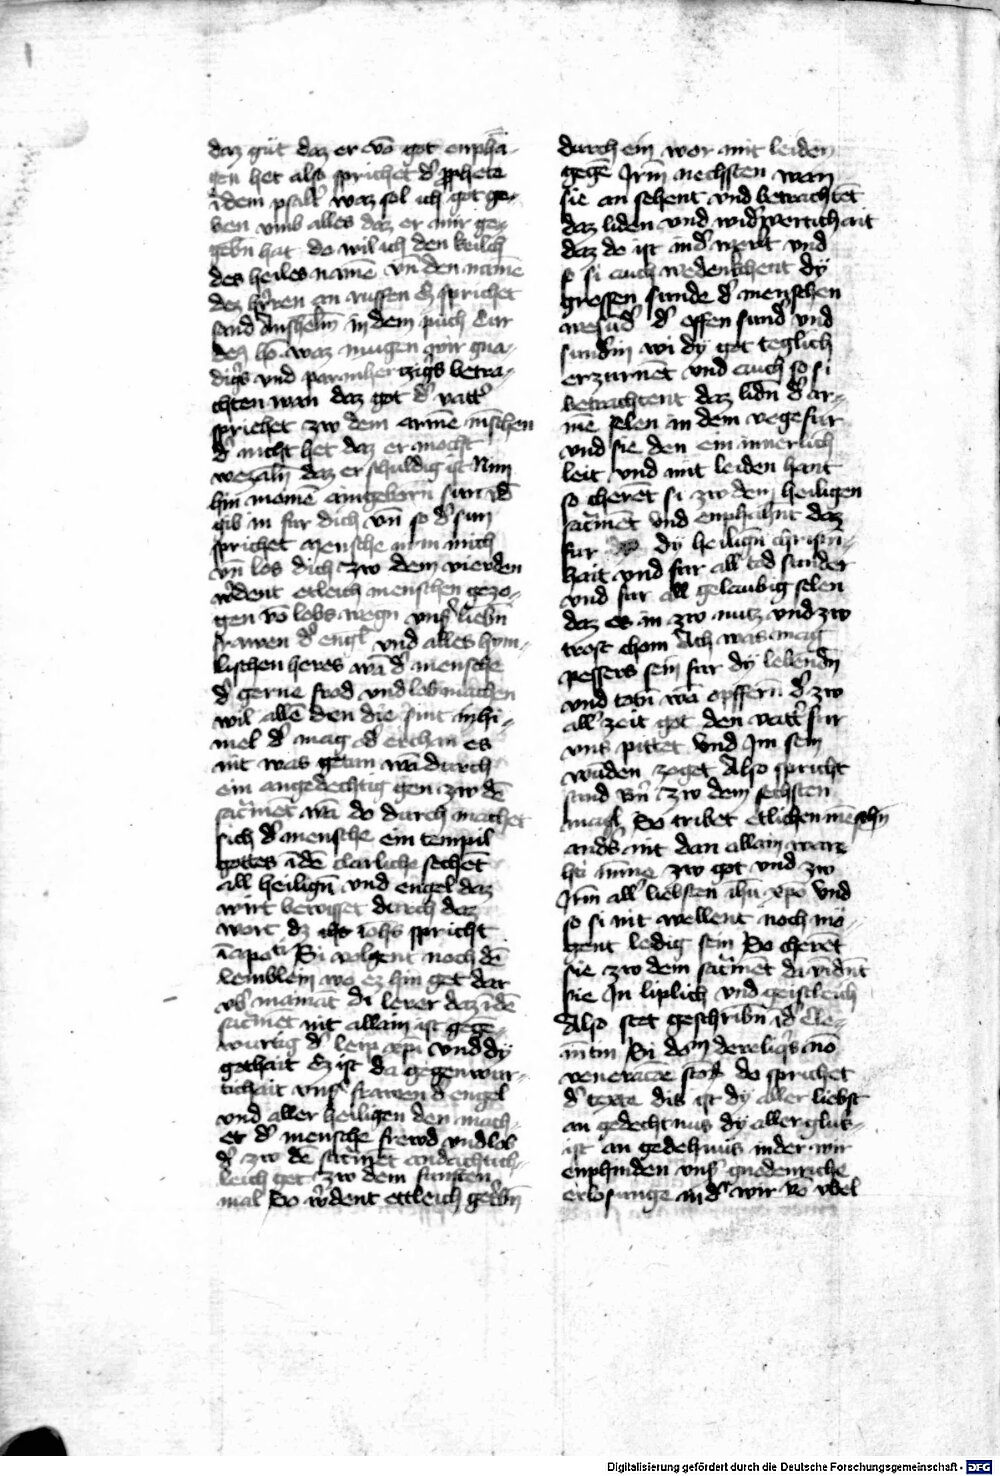 daz gut daz er vō got enphā-
gen het als sprichet d' ꝓphete
ī dem psalt' waz sol ich got ge-
ben vmb alles daz er mir ge-
gebn̄ hat do wil ich den kelich
des heiles namē vn̄ den namē
dez h'ren an ruffen Ez sprichet
sand Anshelm̄ in dem puch Cur
waz mugen wir gna-
digs vnd parmhertzigs betra-
chten wan daz got d' vatt'
sprichet zw dem armē mēschen
d' nicht het daz er mocht
wezaln̄ daz er schuldig ist Nim
hin meinē aingeborn̄ sun vn̄
gib in fur dich vn̄ so d' sun
sprichet mensche nim mich
vn̄ los dich Zw dem vierden
w'dent etleich menschen gezo-
gen vō lobs wegn̄ vns' liebn̄
frawen d' engl' vnd alles hym-
lischen heres wā d' mensche
d' gerne frod vnd lob machen
wil allē den die sint in hi-
mel d' mag er erchan es
nit was getun wā durch
ein angedechtig gen zw dē
sacͬmēt wā do durch machet
sich d' mensche ein tempil
gottes ī dē clarliche sechēt
all heilign̄ vnd engel daz
wirt bewisset durch daz
wort dz ihs iohs spricht
ī apoͨ Si volgent noch dē
lemblein wo ez hin get dar
vb' mainat di lerer daz ī dē
sacͬmēt nit allain ist gegē-
wurtig d' leip xp̄i vnd dÿ
gothait Ez ist da gegenwur-
tichait vns' frawen d' engel
vnd aller heiligen den mach-
et d' mensche frewd vnd lob
d' zw dē sacͬmēt andachtich-
leich get Zw dem funften
mal So w'dent ettleich getribn̄
durch ein wor mit leiden
gegē Irm̄ nechsten wan
sie an sehent vnd betrachtēt
daz liden vnd wid'wertichait
daz do ist in d' werlt vnd
so si auch wedenkchent dÿ
grossen sunde d' menschen
wesūd' d' offen sund' vnd
sundin wi dÿ got teglich
erzurnēt vnd auch so si
betrachtent daz lidn̄ d' ar-
mē selen in dem vegefur
vnd sie den ein innerlich
leit vnd mit leiden hant
so cherēt si zw den heiligen
sacͬmēt vnd enphahnt daz
fur dÿ heilign̄ christn̄-
hait vnd fur all tod sunder
vnd fur all gelaubig selen
daz es in zw nutz vnd zw
trost chom Ach was mag
pessers sein fur dÿ lebendn̄
vnd totn̄ wā opffern̄ d' zw
all' zeit got den vatt' fur
vns pittet vnd Im sein
wūden zoget Also spricht
sand Zw dem sechsten
magl So tribet etlichen mēschn̄
anders nit dan allain ware
minne zw got vnd zw
Irm̄ all' liebsten ih̄u xp̄o vnd
so si nit wellent noch mü-
gent ledig sein So cherēt
sie zw dem sacͬmēt da vindn̄t
sie In liplich vnd geistleich
Also stet geschribn̄ ī d' Cle-
mētin Si doͫ dereliq̄s mō
venerare stoꝛ do sprichet
d' texte dis ist dÿ aller liebst
an gedechtnus dÿ aller glus-
ist an gedehnüs in der wir
enphinden vns' gnodenriche
erlosunge in d' wir vō vbel
Digitalisierung gefördert durch die Deutsche Forschungsgemeinschaft - DFG